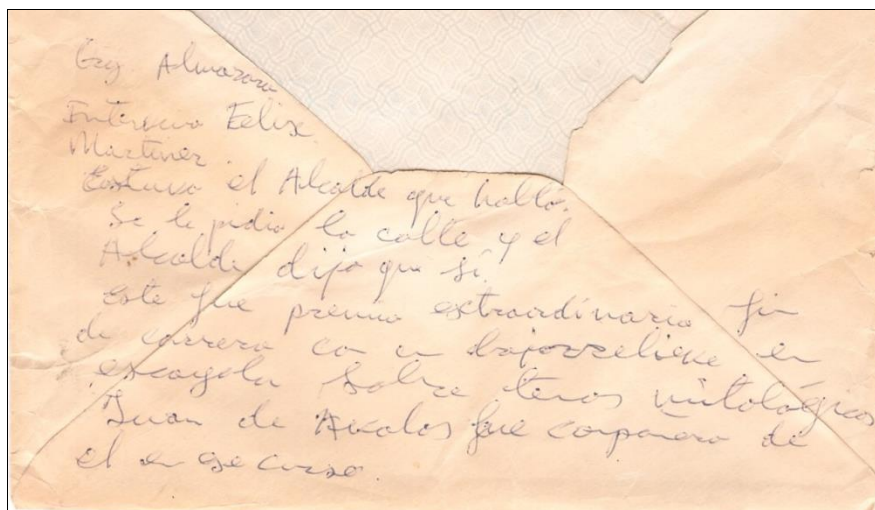 Almazara
Intervino Felix
Martinez.
Estuvo el Alcalde que habló.
Se le pidio la calle y el
Alcalde dijo que sí.
Este fue premio extraordinario fin
de carrera con un bajorrelieve en
escayola sobre temas mitológicos
Juan de Avalos fue compañero de
el en ese curso.